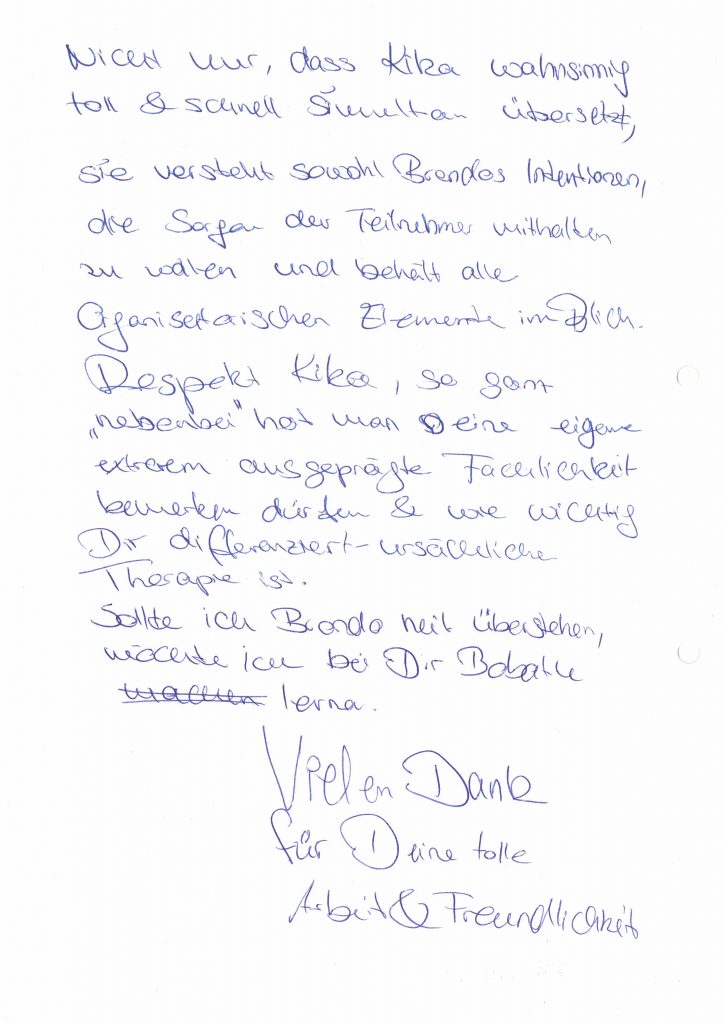 Nicht nur, dass Kika wahnsinnig
toll & schnell Simultan übersetzt,
sie versteht sowohl Brendas Intentionen,
die Sorgen der Teilnehmer mithalten
zu wollen und behält alle
Organisatorischen Elemente im Blick.
Respekt Kika, so ganz
„nebenbei" hat man Deine eigene
extrem ausgeprägte Fachlichkeit
bemerken dürfen & wie wichtig
Dir differenziert-ursächliche
Therapie ist.
Sollte ich Brenda heil überstehen,
möchte ich bei Dir Bobath
machen lernen.
Vielen Dank
für Deine tolle
Arbeit & Freundlichkeit